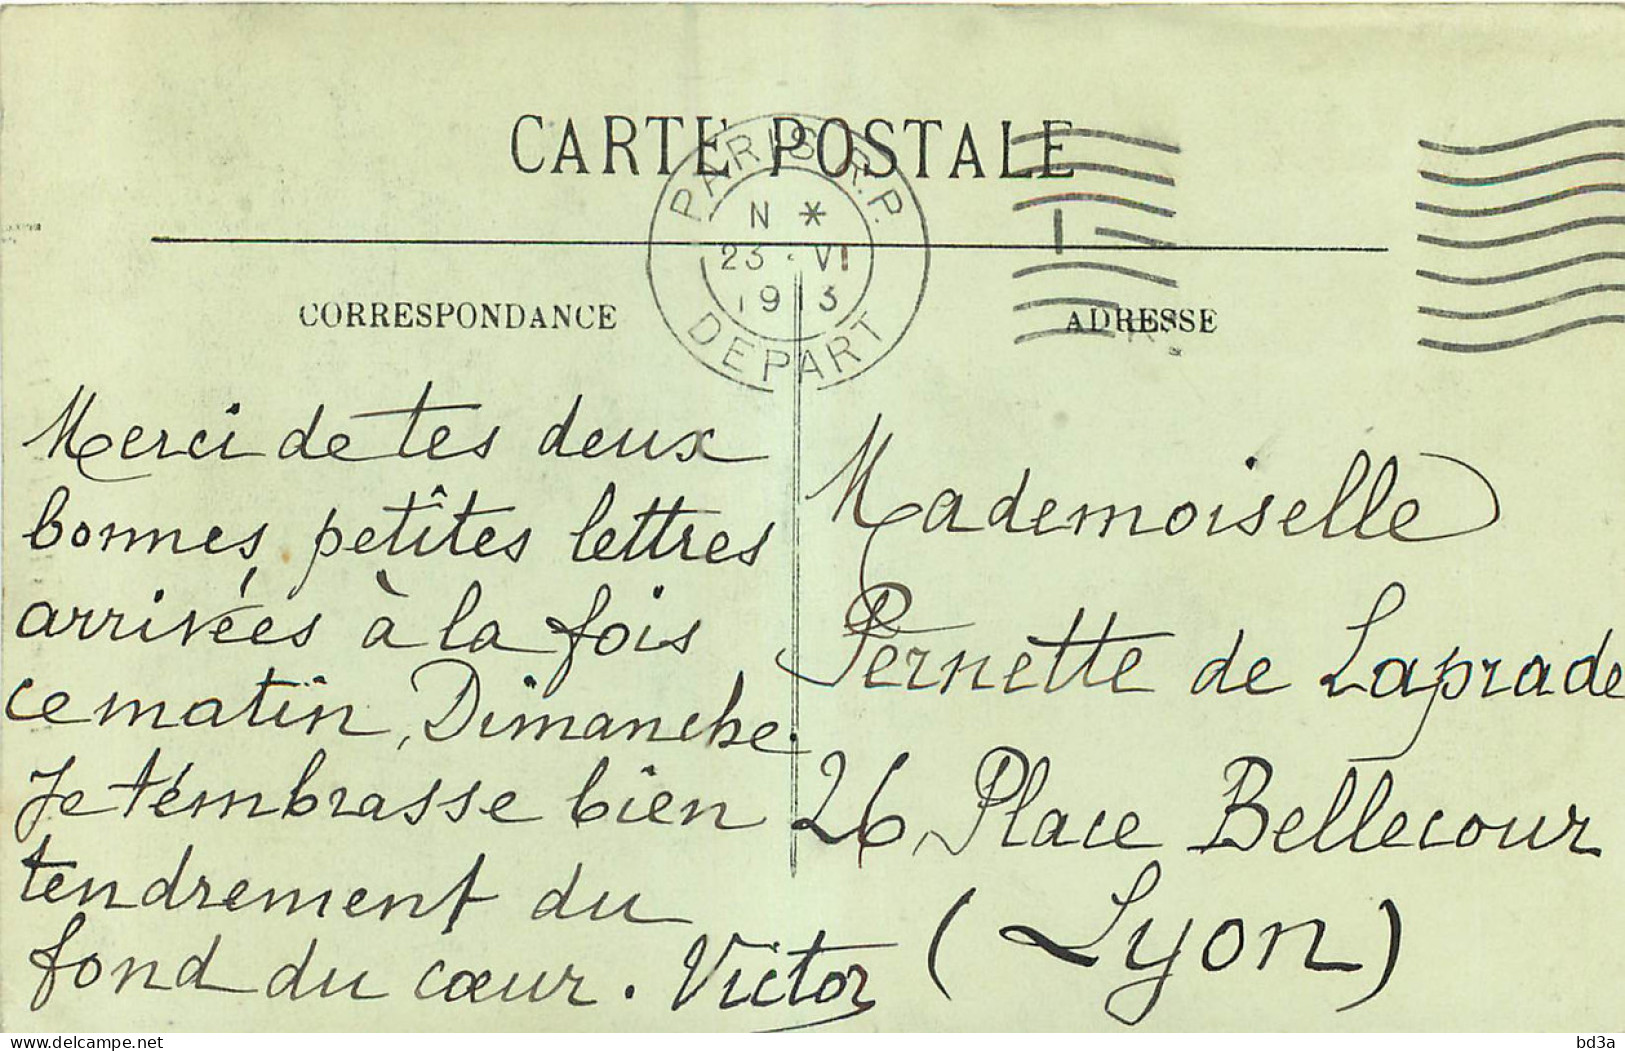 CARTE POSTALE
PARIS R.P.
N *
23 · VI
1913
DEPART
CORRESPONDANCE
ADRESSE
Merci de tes deux
bonnes, petites lettres
arrivées à la fois
ce matin, Dimanche.
Je t'embrasse bien
tendrement du
fond du cœur. Victor
Mademoiselle
Pernette de Laprade
26, Place Bellecour
(Lyon)
delcampe.net
bd3a